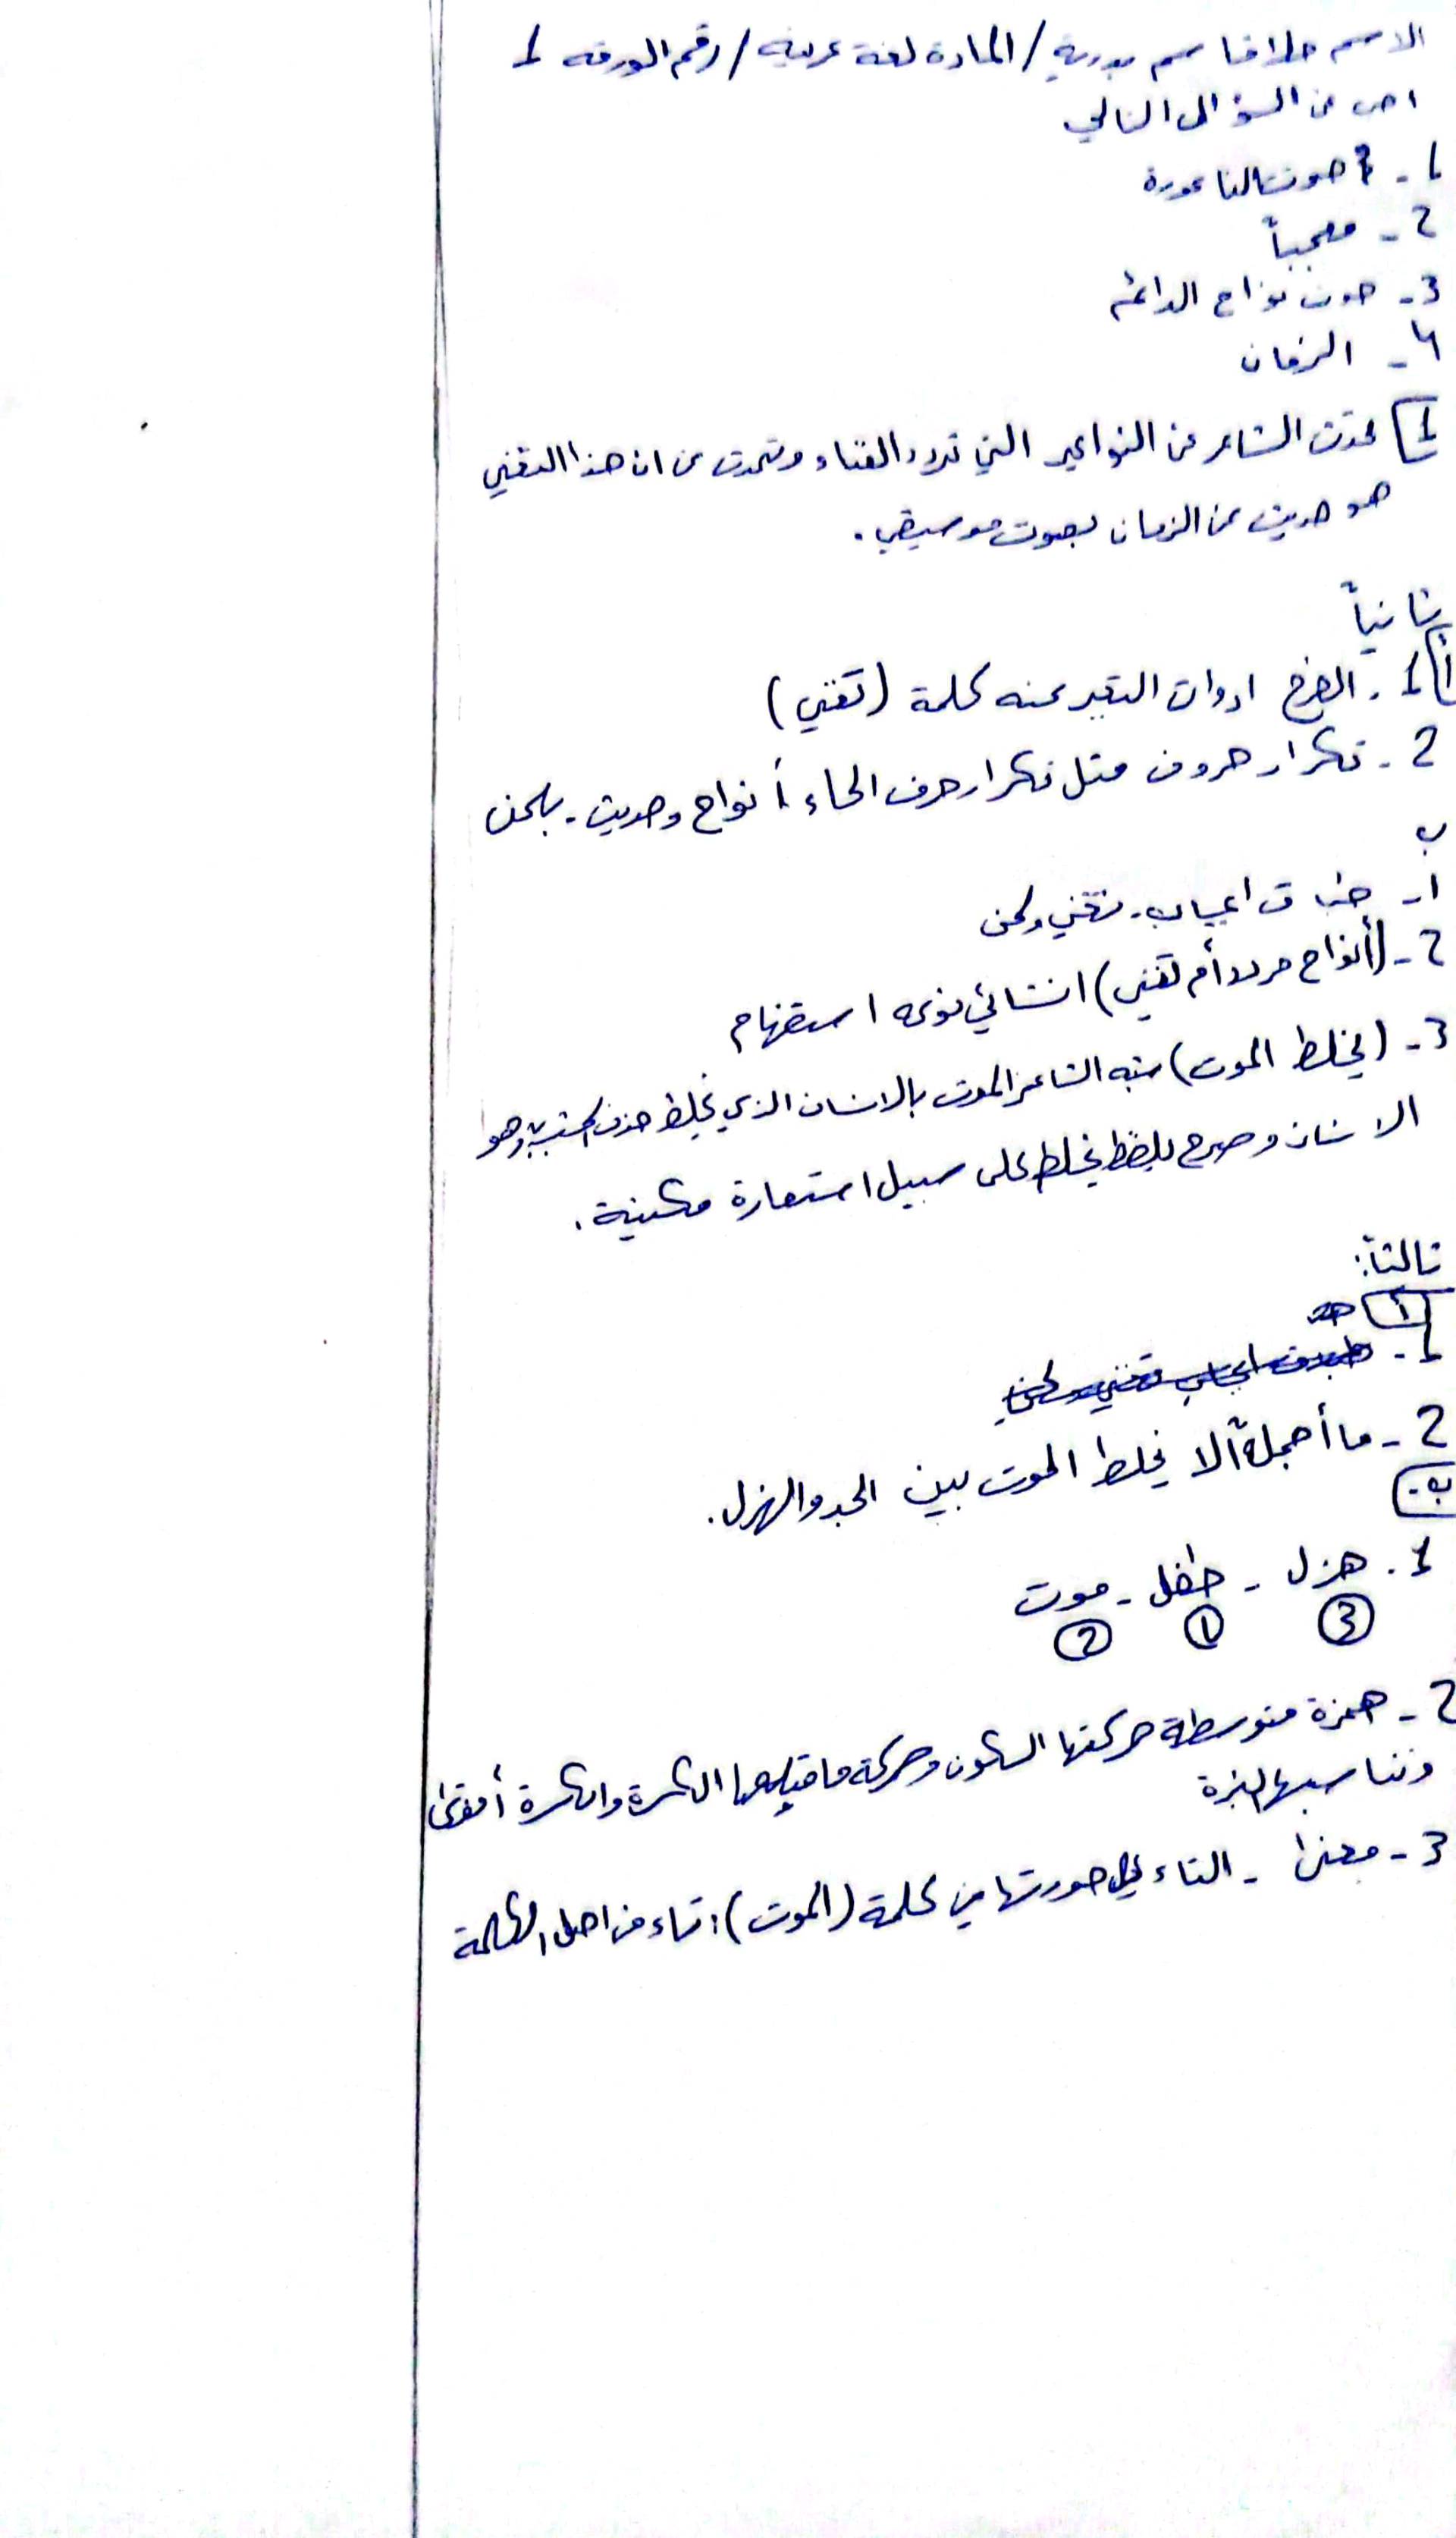 الاسم قاسم / المادة لغة عربية / رقم الورقة 1
اجب عن السؤال التالي
1- صوت الناعورة
2- معجباً
3- صوت نواح الدائم
4- الزمان
1 تحدث الشاعر عن النواعير التي تردد الغناء وتتحدث عن ان هذا التغني
هو حديث عن الزمان بصوت موسيقي.
ثانياً
أ 1. الفرح ادوات التعبير عنه كلمة (تغني)
2- تكرار حروف مثل تكرار حرف الحاء أنواح وحديث - بلحن
ب
1- طباق ايجاب - تغني ولحن
2- (أنواح مردد أم تغني) انشائي نوعه استفهام
3- (يخلط الموت) شبه الشاعر الموت بالانسان الذي يخلط حذف المشبه به وهو
الانسان وصرح بلفظ يخلط على سبيل استعارة مكنية.
ثالثاً:
أ
1- طباق ايجاب تغني ولحن
2- ما أجمل ألا يخلط الموت بين الجد والهزل.
ب.
1. هزل - طفل - موت
3 1 2
2- همزة متوسطة حركتها السكون وحركة ما قبلها الكسرة والكسرة أقوى
وتناسبها النبرة
3- معنى - التاء على صورتها في كلمة (الموت): تاء من اصل الكلمة